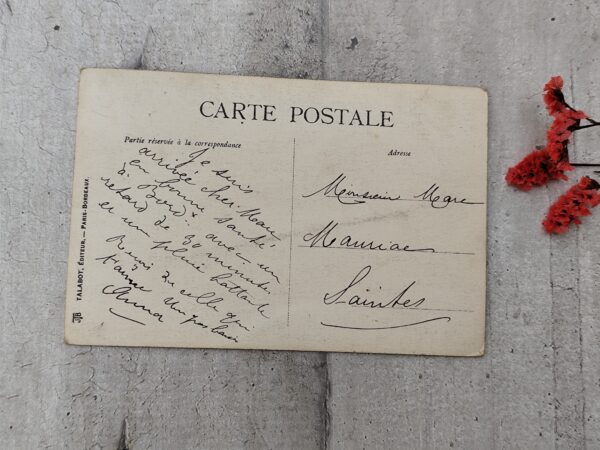 CARTE POSTALE
Partie réservée à la correspondance
Adresse
Je suis
arrivée cher Marc
en bonne santé
à Bord. avec un
retard de 20 minutes
et une pluie battante
Reçois de celle qui
t'aime
Anna
Monsieur Marc
Mauriac
Saintes
TALABOT, ÉDITEUR. — PARIS-BORDEAUX.